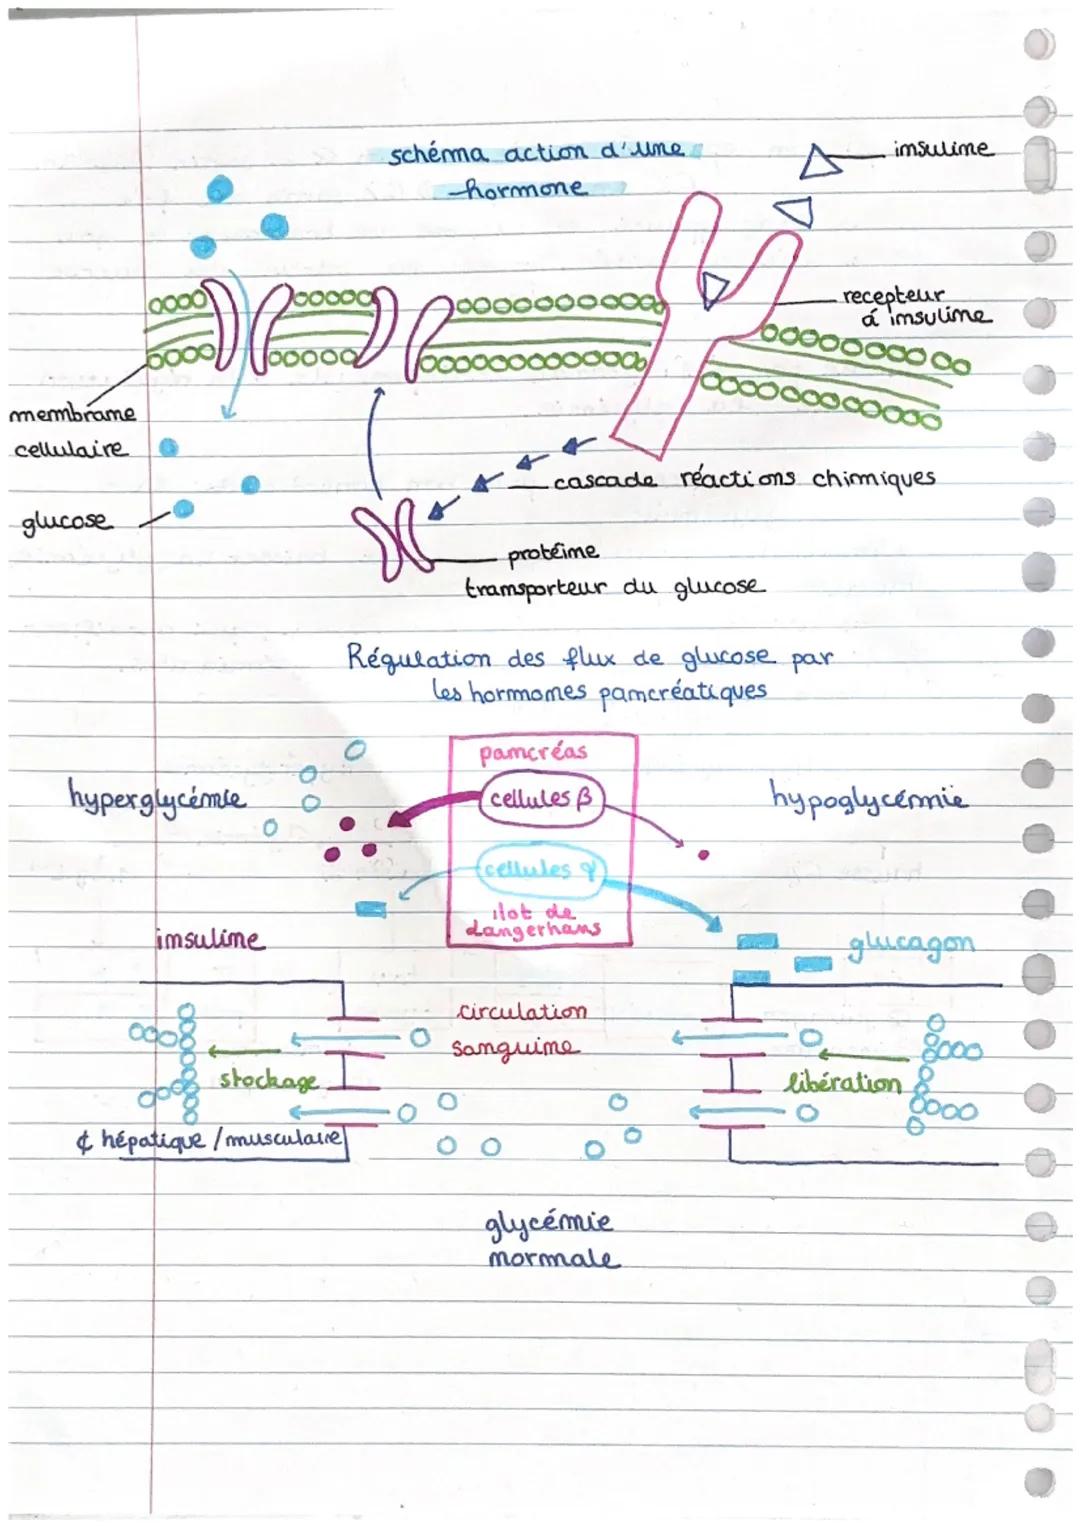 schéma action d'une
hormone
insuline
recepteur
á insuline
membrane
cellulaire
glucose
cascade réactions chimiques
protéine
transporteur du glucose
Régulation des flux de glucose par
les hormones pancréatiques
pancréas
hyperglycémie
cellules β
hypoglycémie
cellules α
ilot de
Langerhans
insuline
glucagon
circulation
sanguine
stockage
libération
¢ hépatique / musculaire
glycémie
normale